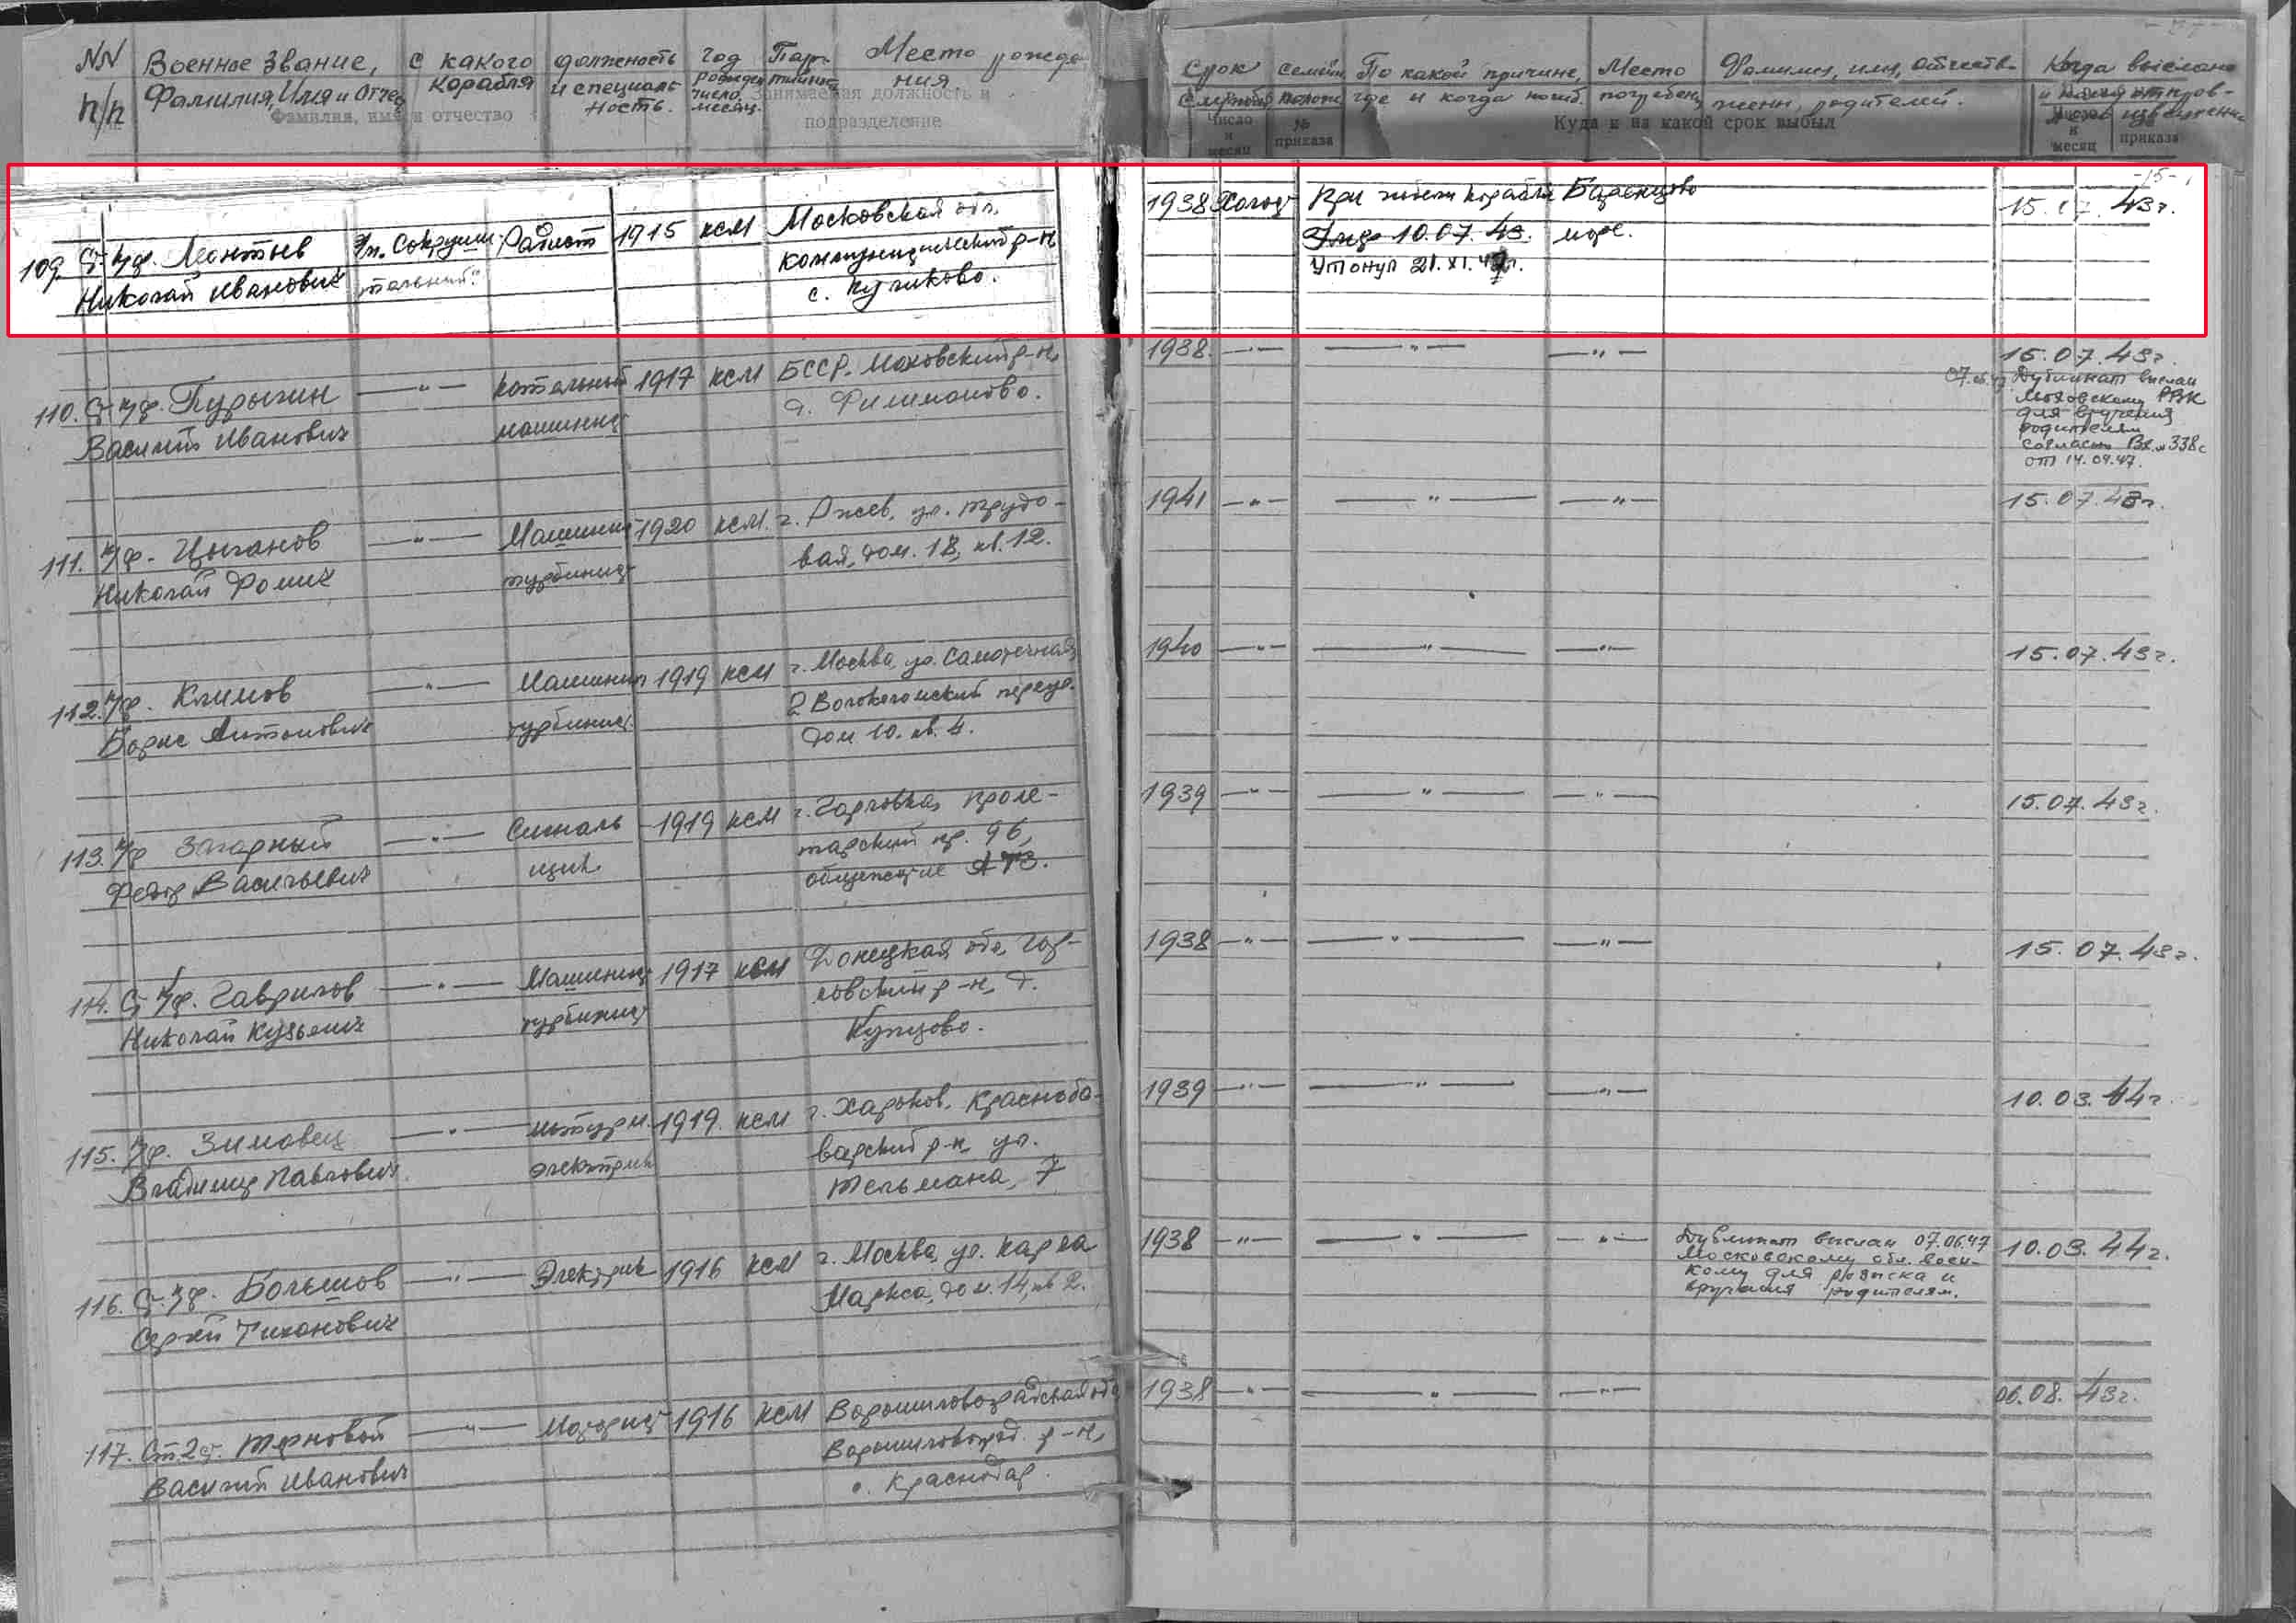 NN п/п
Военное звание, Фамилия, Имя и Отчес
с какого корабля
должность и специальность.
год рожден число, месяц.
Парт
Место рождения
Фамилия, имя и отчество
Занимаемая должность и подразделение
Срок службы
семейн полож
По какой причине, где и когда погиб.
Место погребен
Фамилия, имя, отчеств. жены, родителей.
Когда выслано
Число и месяц
№ приказа
Куда и на какой срок выбыл
месяц
приказа
-15-
109. Ст. к/ф. Леонтьев Эм. "Сокруши- Радист 1915 ксм Московская обл. 1938 Холост При гибели корабля Баренцово 15.07.43г.
Николай Иванович тельный". Коммунистический р-н 10.07.43. море.
с. Куликово. Утонул 21.XI.42г.
110. Ст. к/ф. Пурыгин —"— Котельный 1917 ксм БССР. Моховский р-н, 1938. —"— —"— —"— 15.07.43г.
Василий Иванович машинист д. Филимоново. 07.06.47 Дубликат выслан
Моховскому РВК
для вручения
родителям
согласно Вх. №338с
от 14.04.47.
111. к/ф. Цыганов —"— Машинист 1920 ксм. г. Ржев, ул. Трудо- 1941 —"— —"— —"— 15.07.43г.
Николай Фомич турбинист вая, дом. 18, кв. 12.
112. к/ф. Климов —"— Машинист 1919 ксм г. Москва, ул. Самотечная, 1940 —"— —"— —"— 15.07.43г.
Борис Антонович турбинист. 2 Волоколамский переул.
дом 10. кв. 4.
113. к/ф Загарный —"— Сигналь 1919 ксм г. Горловка, Проле- 1939 —"— —"— —"— 15.07.43г.
Федор Васильевич щик тарский пр. 96,
общежитие
114. Ст. к/ф. Гаврилов —"— Машинист 1917 ксм Донецкая обл, Гор- 1938 —"— —"— —"— 15.07.43г.
Николай Кузьмич турбинист ловский р-н, д.
Купцово.
115. к/ф. Зимовец —"— штурм. 1919. ксм г. Харьков, Красноба- 1939 —"— —"— —"— 10.03.44г.
Владимир Павлович. электрик варский р-н, ул.
Тельмана, 7
116. Ст. к/ф. Большов —"— Электрик 1916 ксм г. Москва, ул. Карла 1938 —"— —"— —"— Дубликат выслан 07.06.47 10.03.44г.
Сергей Тихонович Маркса, дом. 14, кв 2. Московскому обл. воен-
кому для розыска и
вручения родителям.
117. Ст. 2 ст. Терновой —"— Моторист 1916 ксм Ворошиловоградская обл 1938 —"— —"— —"— 06.08.43г.
Василий Иванович Ворошиловград. р-н,
с. Краснодар.